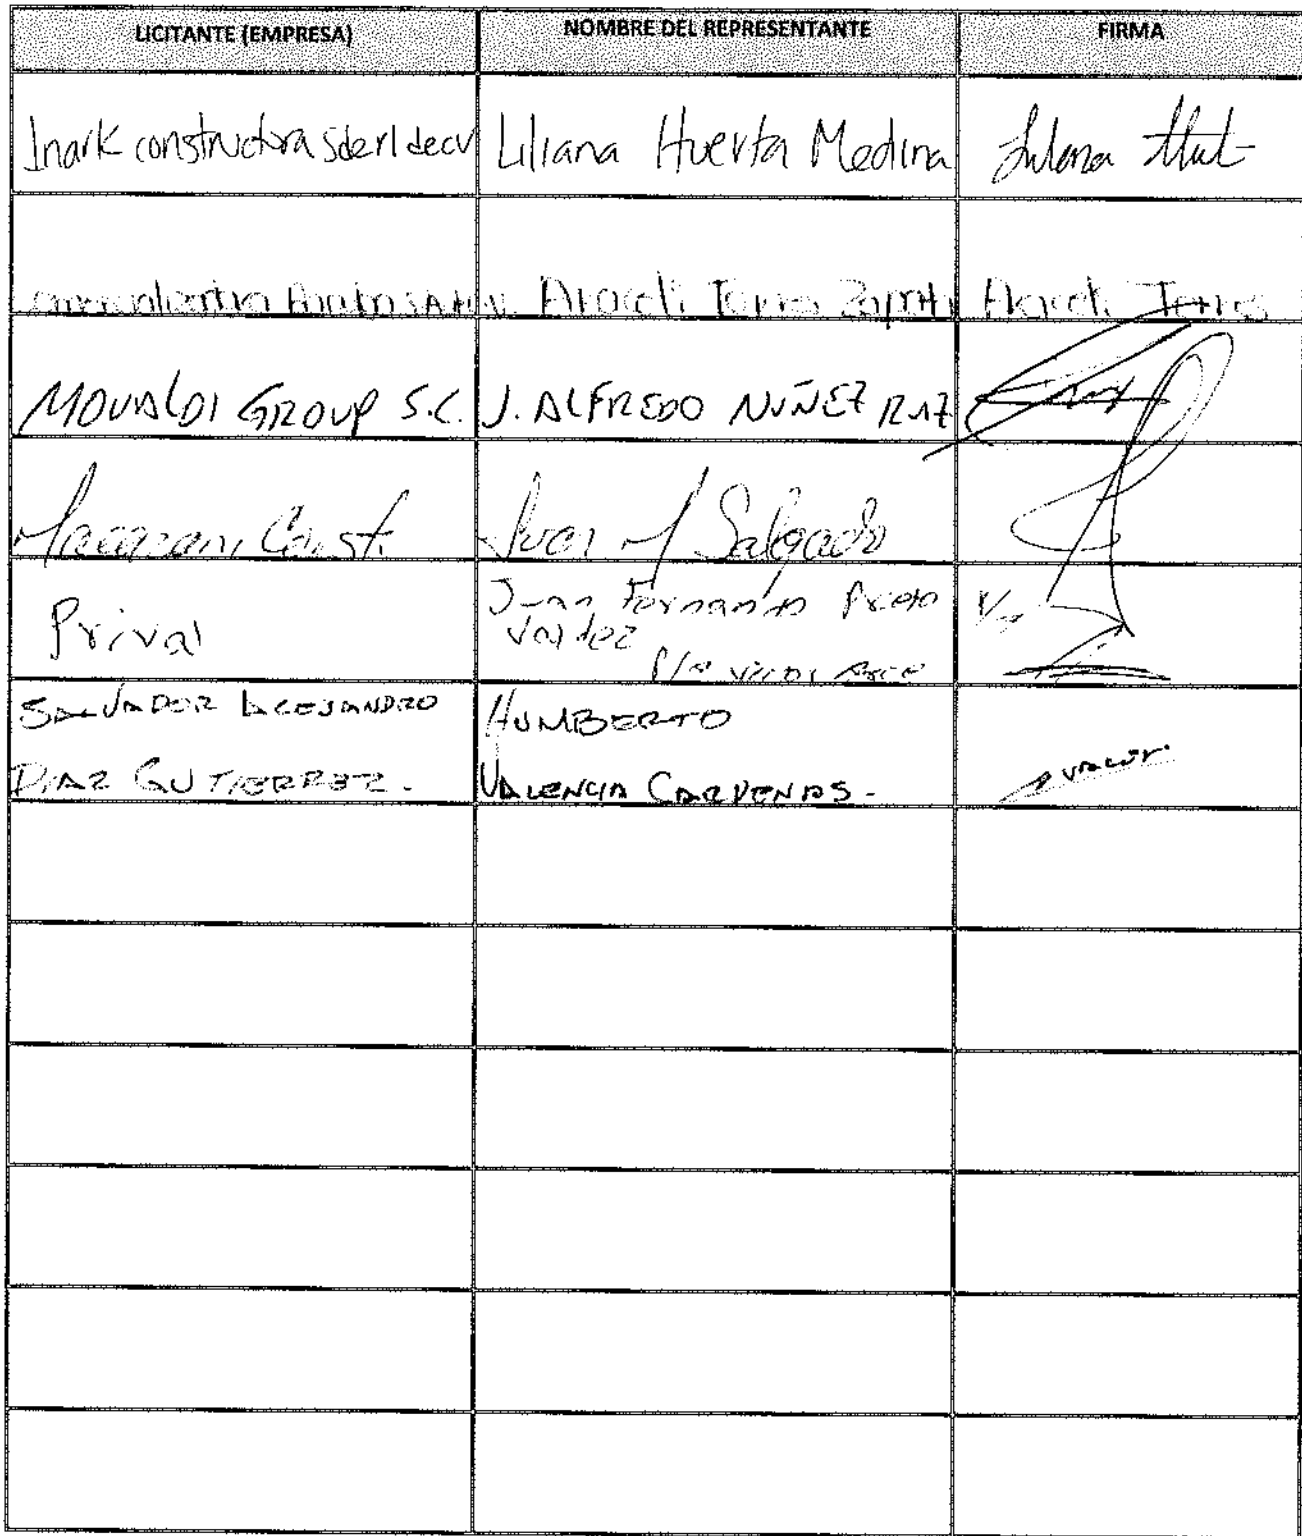 LICITANTE (EMPRESA) NOMBRE DEL REPRESENTANTE FIRMA
Inark constructora sderl decv Liliana Huerta Medina
Araceli Torres Zapata Araceli Torres
MOVALDI GROUP S.C. J. ALFREDO NUÑEZ RUIZ
Const. Salgado
Prival Juan Fernando
Valdez
SALVADOR ALEJANDRO HUMBERTO
DIAZ GUTIERREZ. VALENCIA CARDENAS.